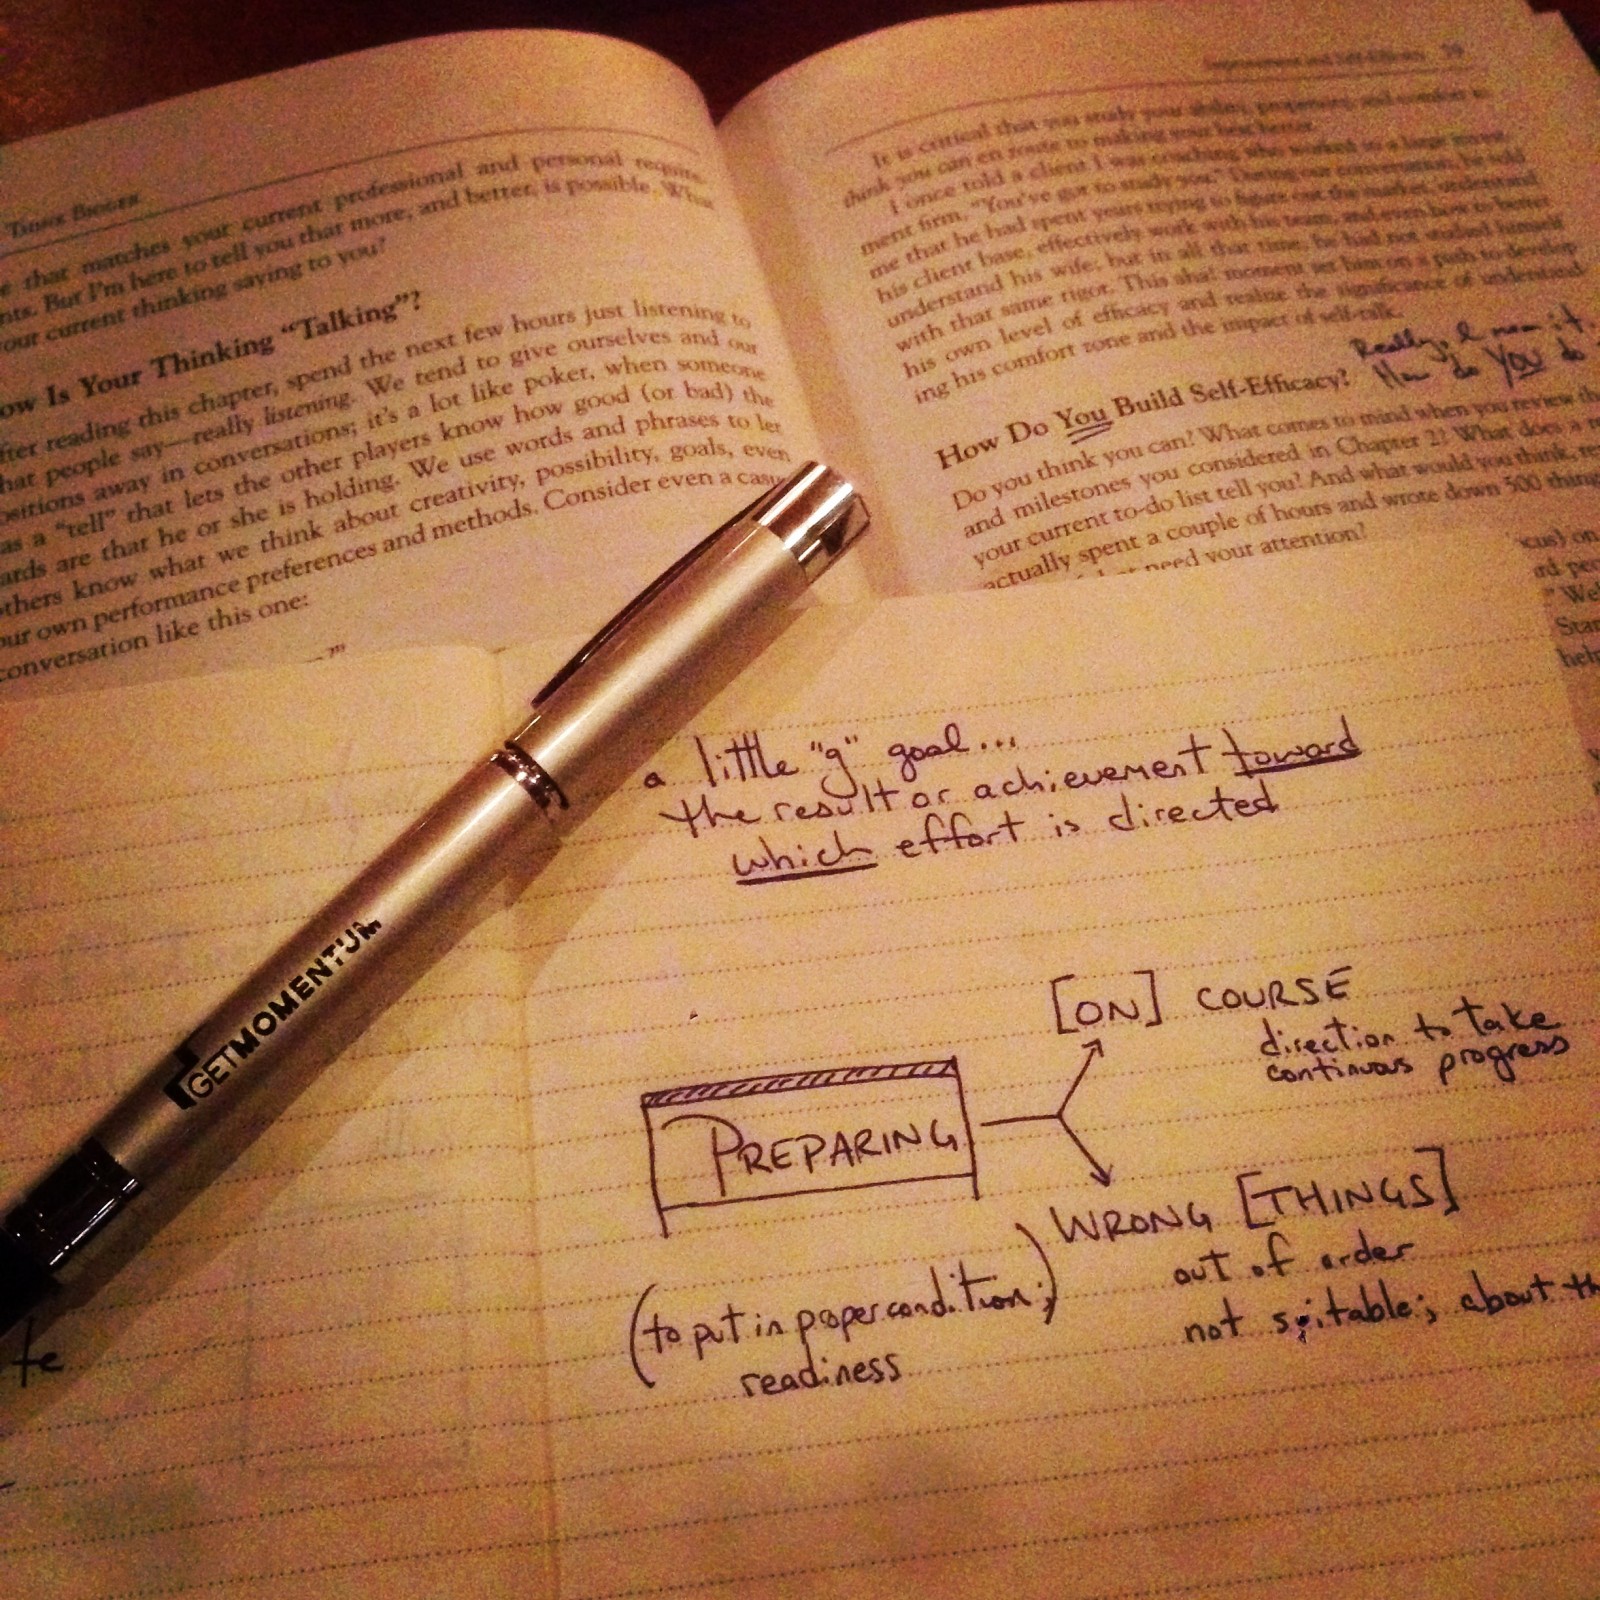 e that matches your current professional and personal require-
nts. But I'm here to tell you that more, and better, is possible. What
our current thinking saying to you?
ow Is Your Thinking “Talking”?
fter reading this chapter, spend the next few hours just listening to
hat people say—really listening. We tend to give ourselves and our
ositions away in conversations; it's a lot like poker, when someone
as a “tell” that lets the other players know how good (or bad) the
ards are that he or she is holding. We use words and phrases to let
thers know what we think about creativity, possibility, goals, even
our own performance preferences and methods. Consider even a casu
conversation like this one:
Improvement and Self-Efficacy
It is critical that you study your ability, propensity, and comfort to
think you can en route to making your best better.
I once told a client I was coaching who worked in a large invest-
ment firm, “You've got to study you.” During our conversation, he told
me that he had spent years trying to figure out the market, understand
his client base, effectively work with his team, and even how to better
understand his wife; but in all that time, he had not studied himself
with that same rigor. This aha! moment set him on a path to develop
his own level of efficacy and realize the significance of understand-
ing his comfort zone and the impact of self-talk.
Really, I mean it.
How do YOU do
How Do You Build Self-Efficacy?
Do you think you can? What comes to mind when you review the
and milestones you considered in Chapter 2? What does a re
your current to-do list tell you? And what would you think, rea
actually spent a couple of hours and wrote down 500 things
need your attention?
cus) on
rd peo
” We'
Star
help
GETMOMENTUM
a little "g" goal...
the result or achievement toward
which effort is directed
[ON] COURSE
direction to take
continuous progress
PREPARING
WRONG [THINGS]
out of order
not suitable; about th
(to put in proper condition;)
readiness
te